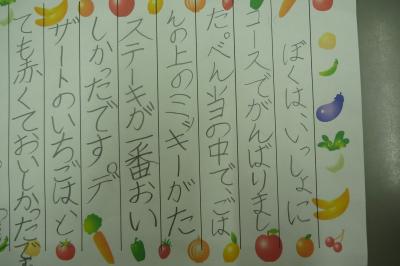 ぼくは、いっしょに
コースでがんばりまし
た。べん当の中で、ごは
んの上のミッキーがた
ステーキが一番おい
しかったです。デ
ザートのいちごは、と
ても赤くておいしかったです